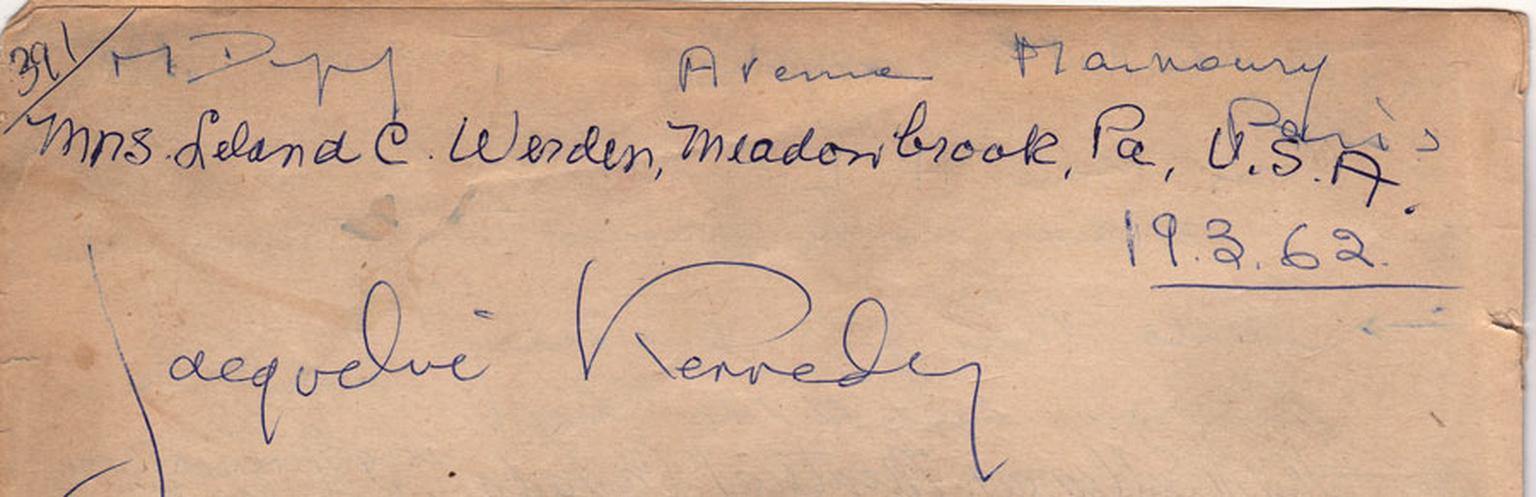 391/ M Avenue Paris
Mrs. Leland C. Werden, Meadowbrook, Pa, U.S.A.
19.3.62.
Jacqueline Kennedy